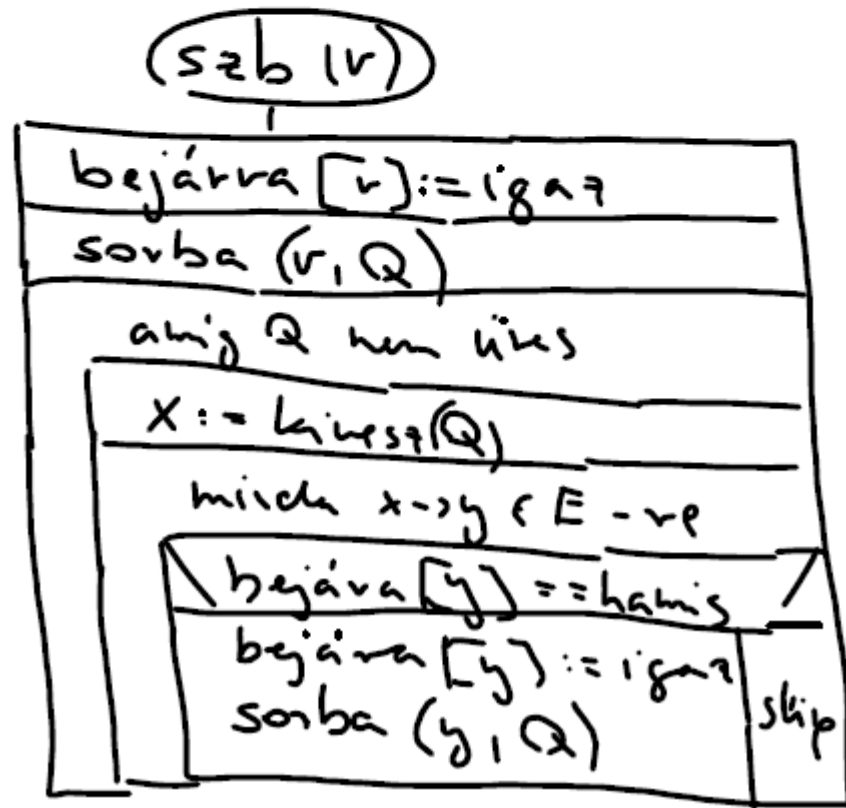 szb (v)
bejárva [v] := igaz
sorba (v, Q)
amíg Q nem üres
x := kivesz(Q)
minden x->y ∈ E -re
bejárva [y] == hamis
bejárva [y] := igaz
sorba (y, Q)
skip